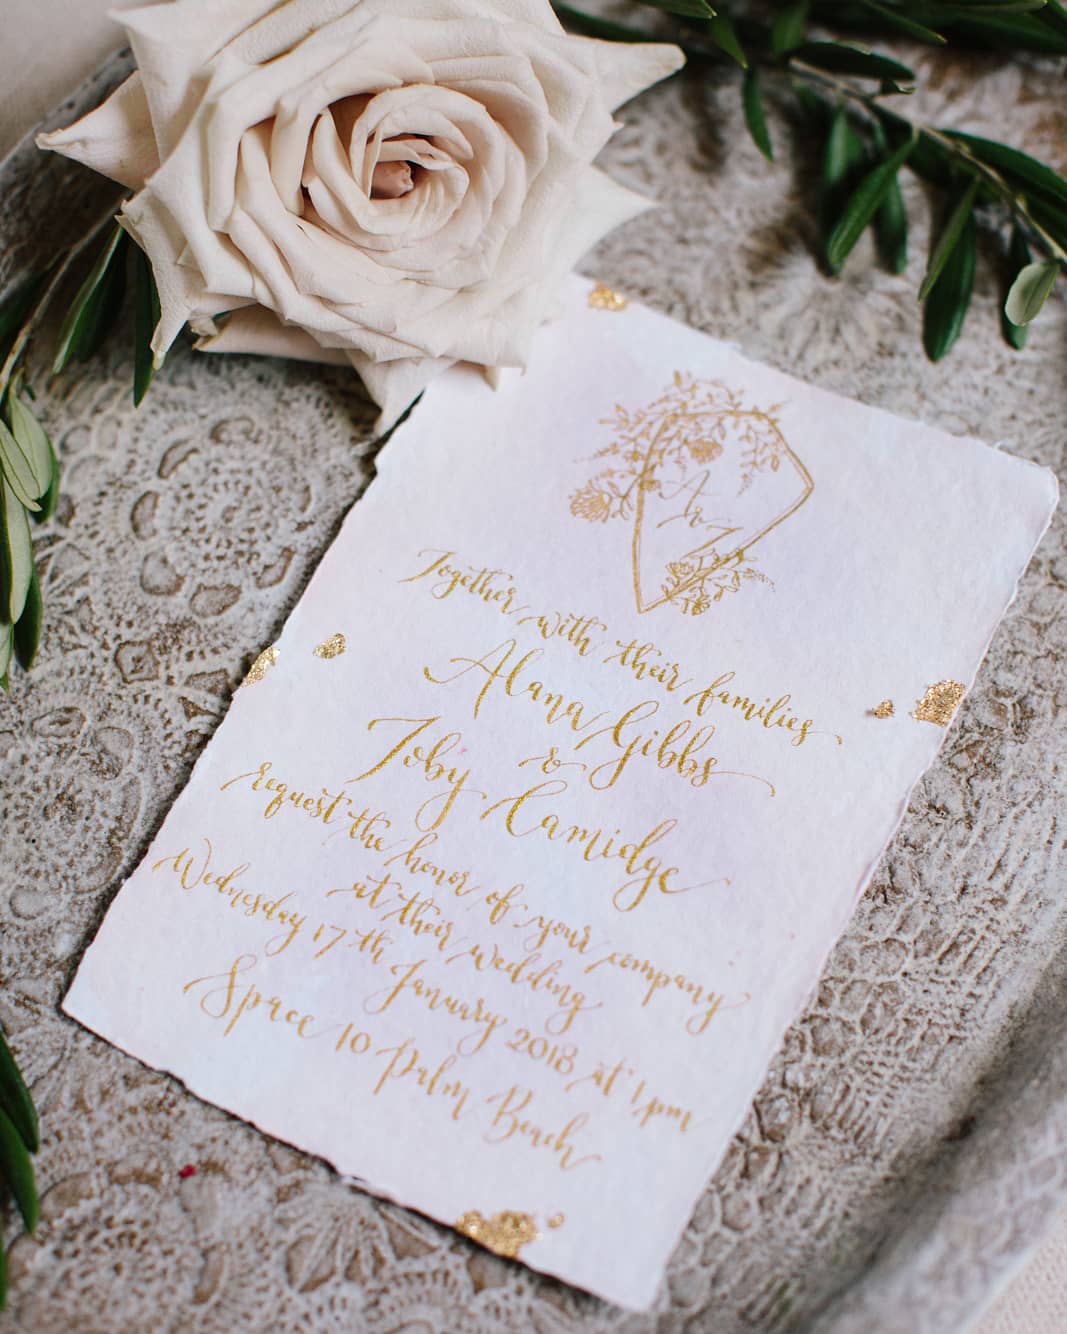 Together with their families
Alana Gibbs
&
Toby Camidge
request the honor of your company
at their wedding
Wednesday 17th January 2018 at 1pm
Space 10 Palm Beach